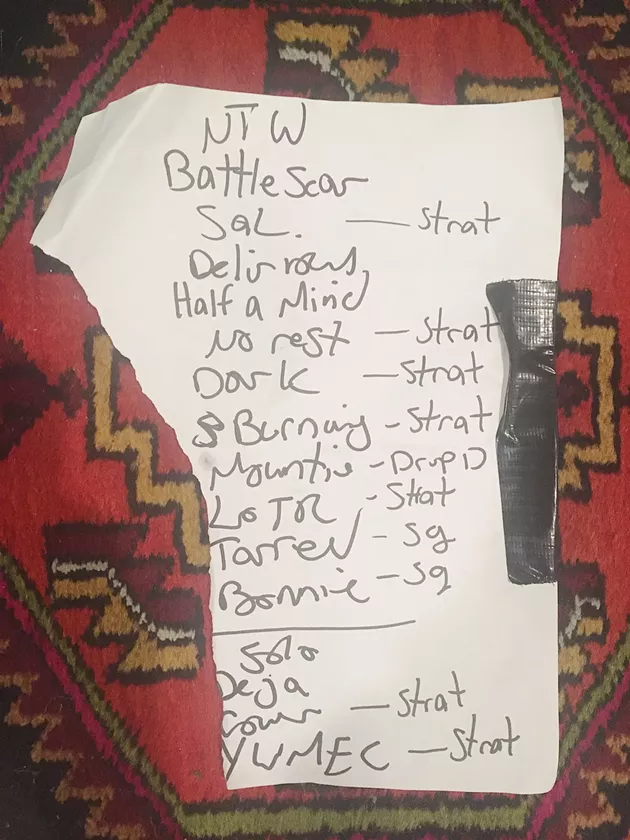 NTW
Battle Scar
SGL. — Strat
Delirious,
Half a Mind
No rest — Strat
Dark — Strat
Burning - Strat
Mountie - Drop D
LOTR - Strat
Torred - Sg
Bonnie - Sg
Solo
Deja
— Strat
YWMEC — Strat